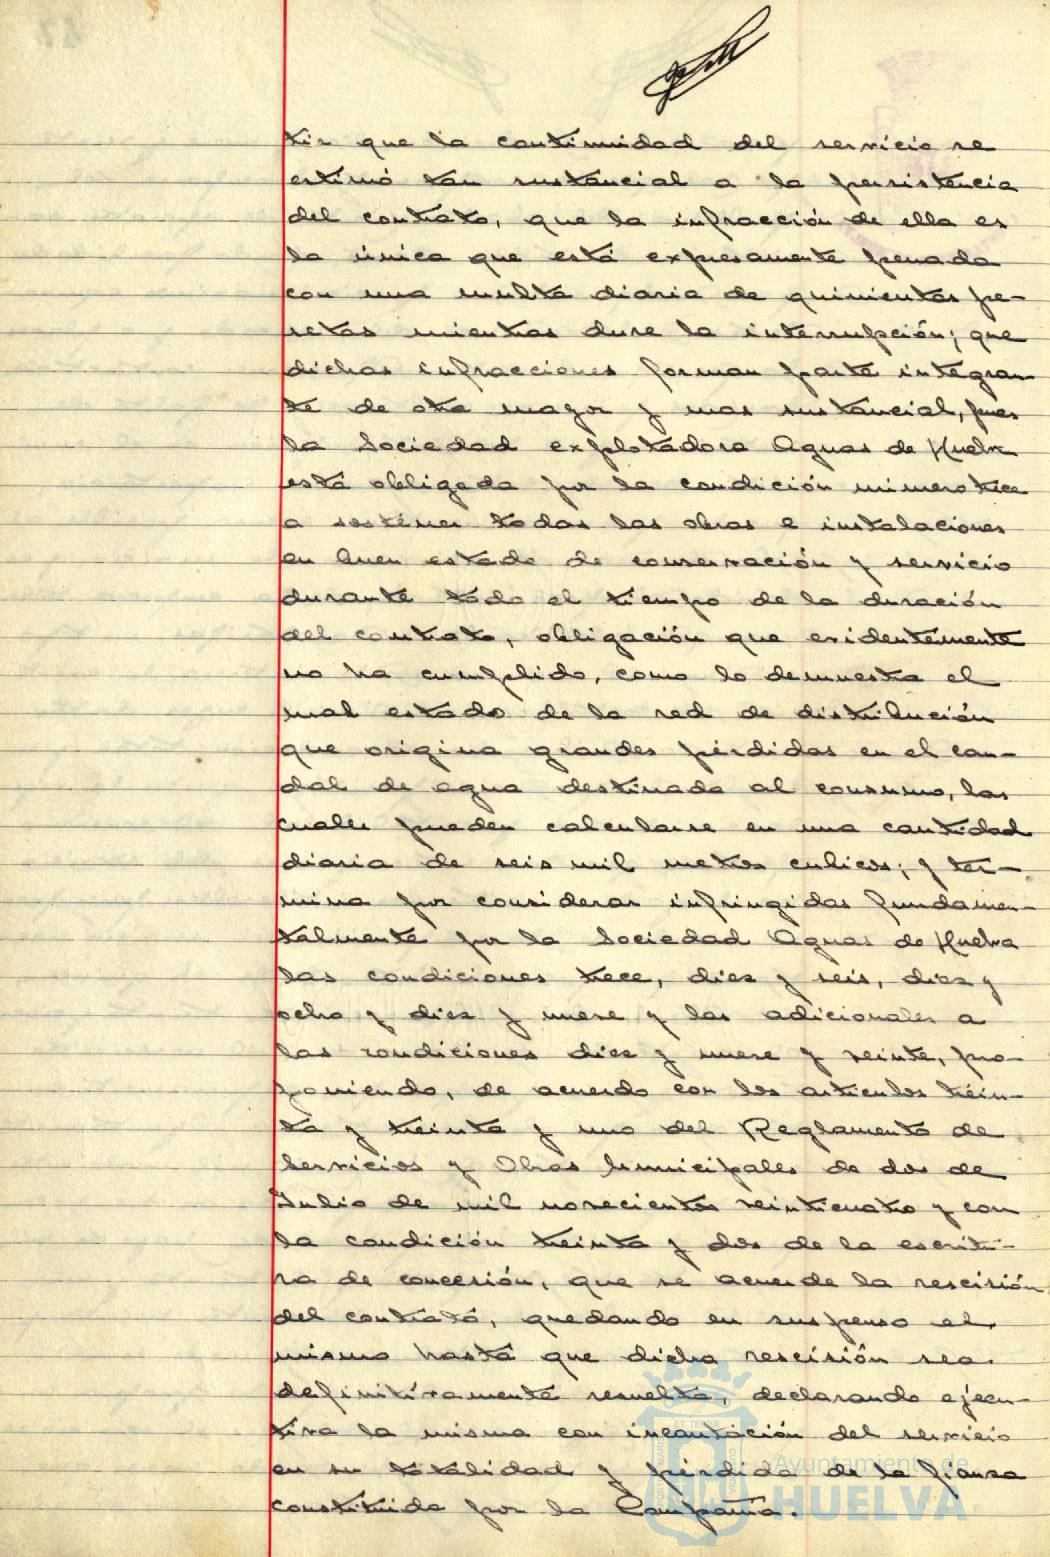 tir que la continuidad del servicio se
estimó tan sustancial a la persistencia
del contrato, que la infracción de ella es
la única que está expresamente penada
con una multa diaria de quinientas pe-
setas mientras dure la interrupción; que
dichas infracciones forman parte integran-
te de otra mayor y mas sustancial, pues
la Sociedad explotadora Aguas de Huelva
está obligada por la condición número trece
a sostener todas las obras e instalaciones
en buen estado de conservación y servicio
durante todo el tiempo de la duración
del contrato, obligación que evidentemente
no ha cumplido, como lo demuestra el
mal estado de la red de distribución
que origina grandes pérdidas en el cau-
dal de agua destinada al consumo, las
cuales pueden calcularse en una cantidad
diaria de seis mil metros cubicos; y ter-
mina por considerar infringidas fundamen-
talmente por la Sociedad Aguas de Huelva
las condiciones trece, diez y seis, diez y
ocho y diez y nueve y las adicionales a
las condiciones diez y nueve y veinte, pro-
poniendo, de acuerdo con los articulos trein-
ta y treinta y uno del Reglamento de
Servicios y Obras Municipales de dos de
Julio de mil novecientos veinticuatro y con
la condición treinta y dos de la escritu-
ra de concesión, que se acuerde la rescisión
del contrato, quedando en suspenso el
mismo hasta que dicha rescisión sea
definitivamente resuelta, declarando ejecu-
tiva la misma con incautación del servicio
en su totalidad y pérdida de la fianza
constituida por la Compañía.
Ayuntamiento de
HUELVA